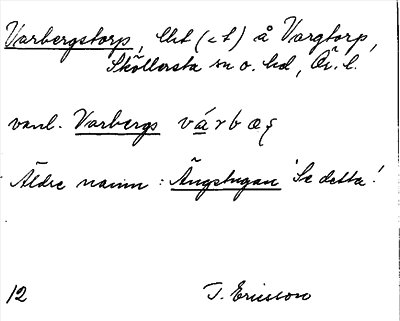 Varbergstorp, lht (ct) å Vargtorp,
Sköllersta sn o. hd, Ör. l.
vanl. Varbergs várbæς
Äldre namn: Ängstugan Se detta!
12 T. Ericsson